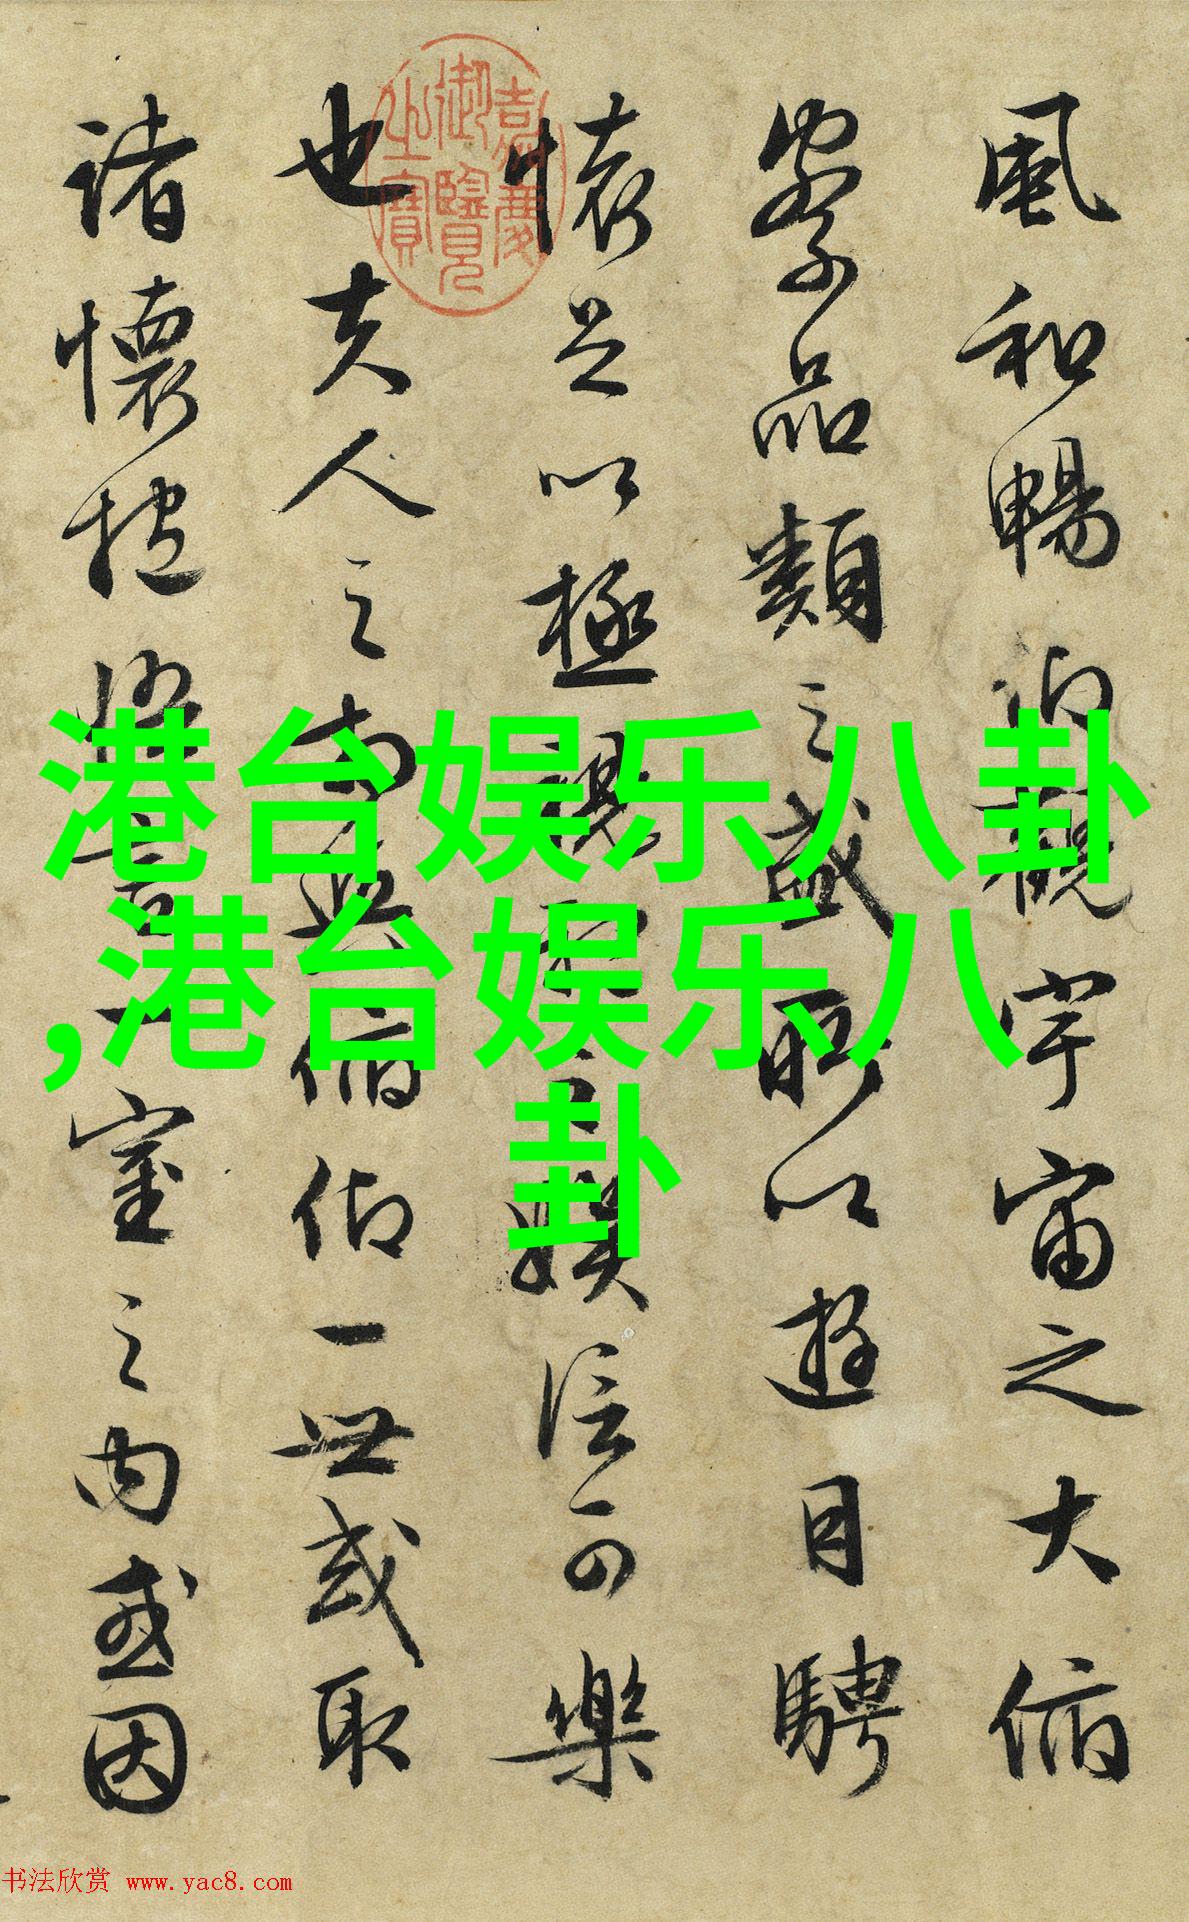 風和暢仰觀宇宙之大俯
察品類之盛所以遊目騁
懷足以極視聽之娛信可樂
也夫人之相與俯仰一世或取
諸懷抱悟言一室之內或因
嘉慶御覽之寶
港台娱乐八卦
,港台娱乐八
卦
书法欣赏 www.yac8.com